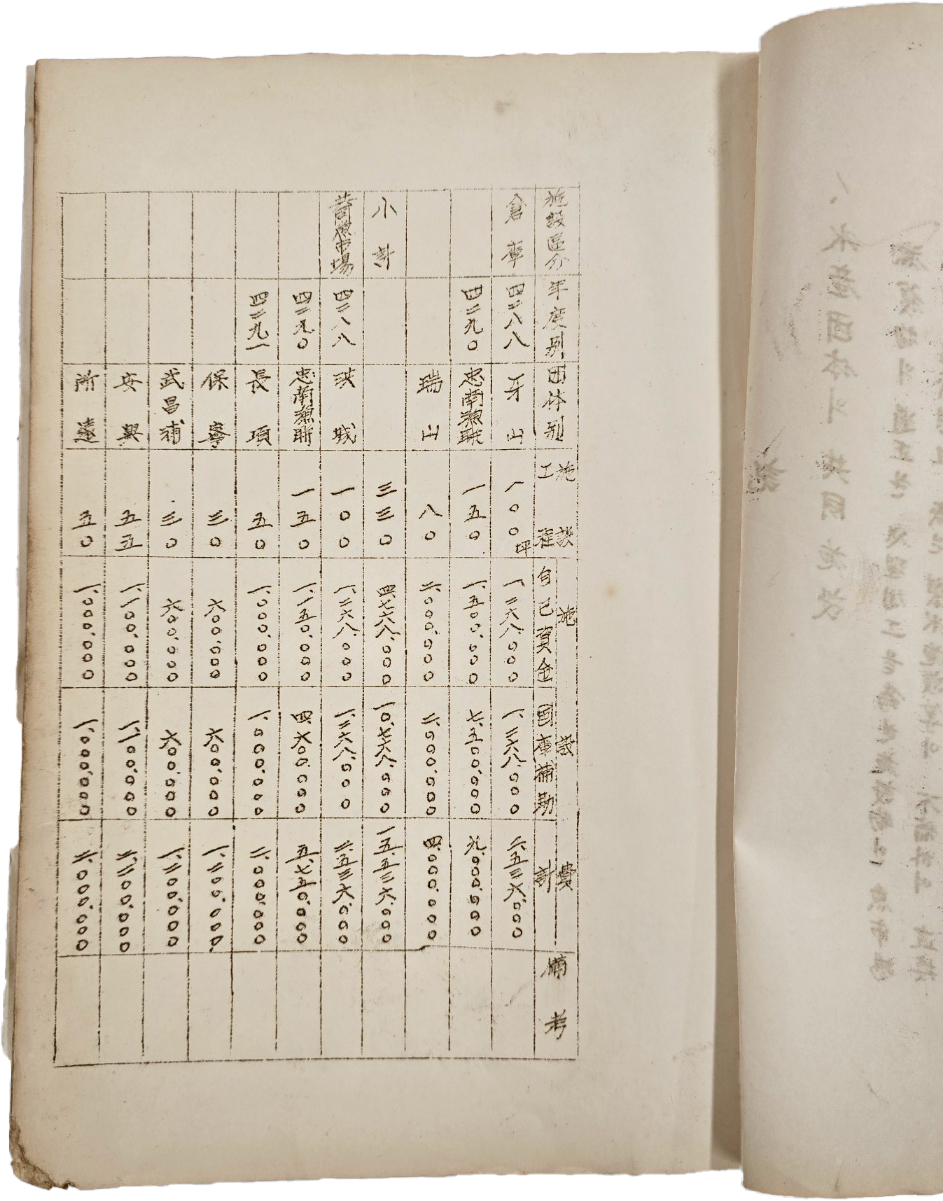 施設區分 年度别 団体别 施設工程 施設費 自己資金 國庫補助 計 備考
倉庫 四二八八 牙山 一〇〇坪 一、二六八、〇〇〇 一、二六八、〇〇〇 二、五三六、〇〇〇
四二九〇 忠南漁聯 一五〇 一、五〇〇、〇〇〇 七、五〇〇、〇〇〇 九、〇〇〇、〇〇〇
瑞山 八〇 二、〇〇〇、〇〇〇 二、〇〇〇、〇〇〇 四、〇〇〇、〇〇〇
小計 三三〇 四、七六八、〇〇〇 一〇、七六八、〇〇〇 一五、五三六、〇〇〇
四二八八 洪城 一〇〇 一、二六八、〇〇〇 一、二六八、〇〇〇 二、五三六、〇〇〇
四二九〇 忠南漁聯 一五〇 一、一五〇、〇〇〇 四、六〇〇、〇〇〇 五、七五〇、〇〇〇
四二九一 長項 五〇 一、〇〇〇、〇〇〇 一、〇〇〇、〇〇〇 二、〇〇〇、〇〇〇
保寧 三〇 六〇〇、〇〇〇 六〇〇、〇〇〇 一、二〇〇、〇〇〇
武昌浦 三〇 六〇〇、〇〇〇 六〇〇、〇〇〇 一、二〇〇、〇〇〇
安興 五五 一、一〇〇、〇〇〇 一、一〇〇、〇〇〇 二、二〇〇、〇〇〇
所遠 五〇 一、〇〇〇、〇〇〇 一、〇〇〇、〇〇〇 二、〇〇〇、〇〇〇